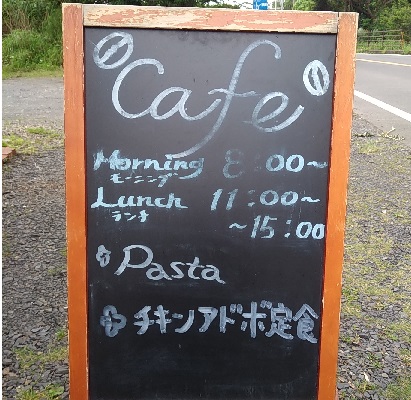 Cafe
Morning 8:00~
モーニング
Lunch 11:00~
ランチ
~15:00
Pasta
チキンアドボ定食